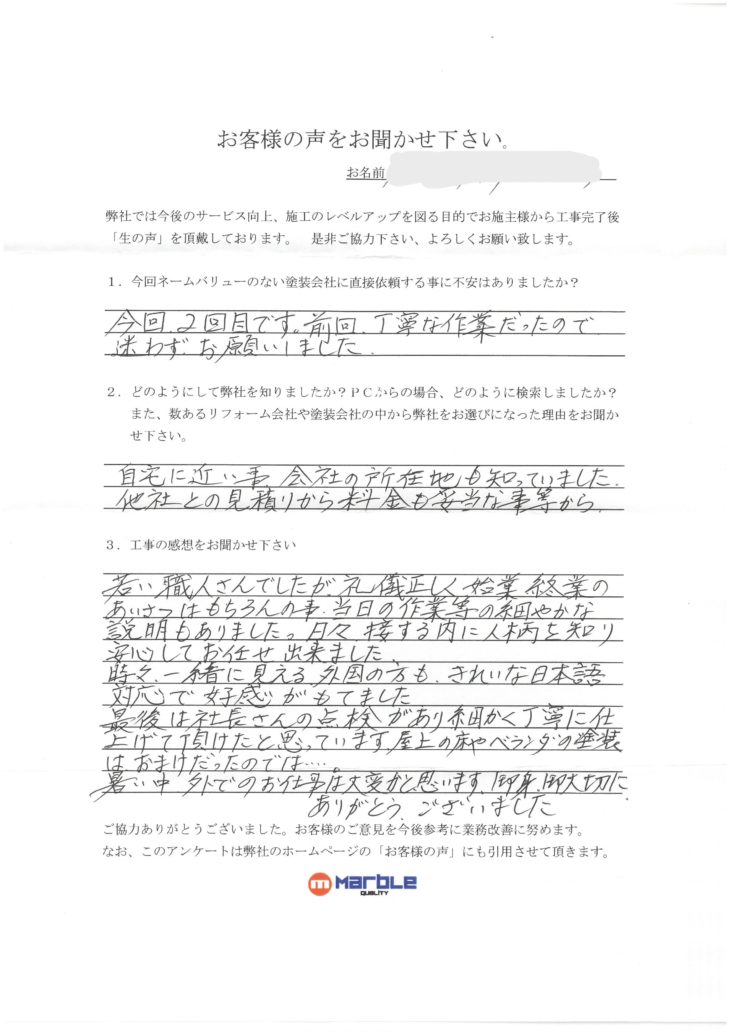 お客様の声をお聞かせ下さい。
お名前
弊社では今後のサービス向上、施工のレベルアップを図る目的でお施主様から工事完了後
「生の声」を頂戴しております。 是非ご協力下さい、よろしくお願い致します。
1．今回ネームバリューのない塗装会社に直接依頼する事に不安はありましたか？
今回、2回目です。前回、丁寧な作業だったので
迷わず、お願いしました、
2．どのようにして弊社を知りましたか？PCからの場合、どのように検索しましたか？
また、数あるリフォーム会社や塗装会社の中から弊社をお選びになった理由をお聞か
せ下さい。
自宅に近い事、会社の所在地も知っていました、
他社との見積りから料金も妥当な事等から、
3．工事の感想をお聞かせ下さい
若い職人さんでしたが、礼儀正しく始業終業の
あいさつはもちろんの事、当日の作業等の細やかな
説明もありました。日々接する内に人柄を知り
安心してお任せ出来ました、
時々、一緒に見える外国の方も、きれいな日本語
対応で好感がもてました
最後は社長さんの点検があり細かく丁寧に仕
上げて頂けたと思っています、屋上の床やベランダの塗装
はおまけだったのでは‥‥。
暑い中 外でのお仕事は大変かと思います、御身、御大切に、
ありがとう、ございました
ご協力ありがとうございました。お客様のご意見を今後参考に業務改善に努めます。
なお、このアンケートは弊社のホームページの「お客様の声」にも引用させて頂きます。
m MarbLe
QUALITY